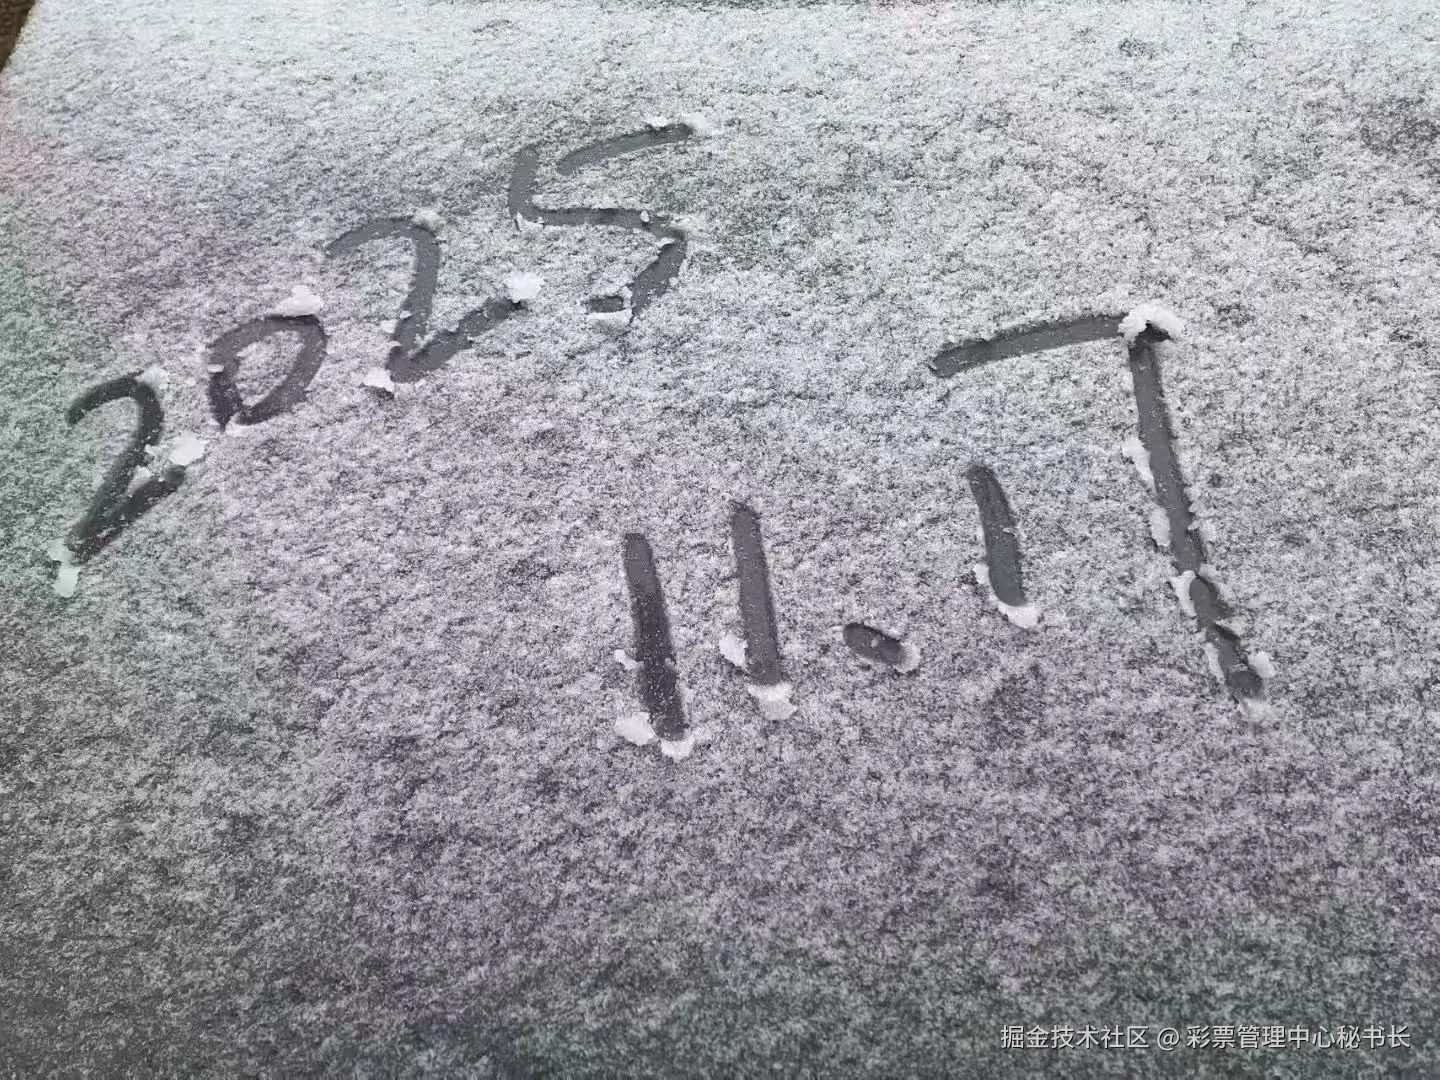 2025
11.17
掘金技术社区 @ 彩票管理中心秘书长